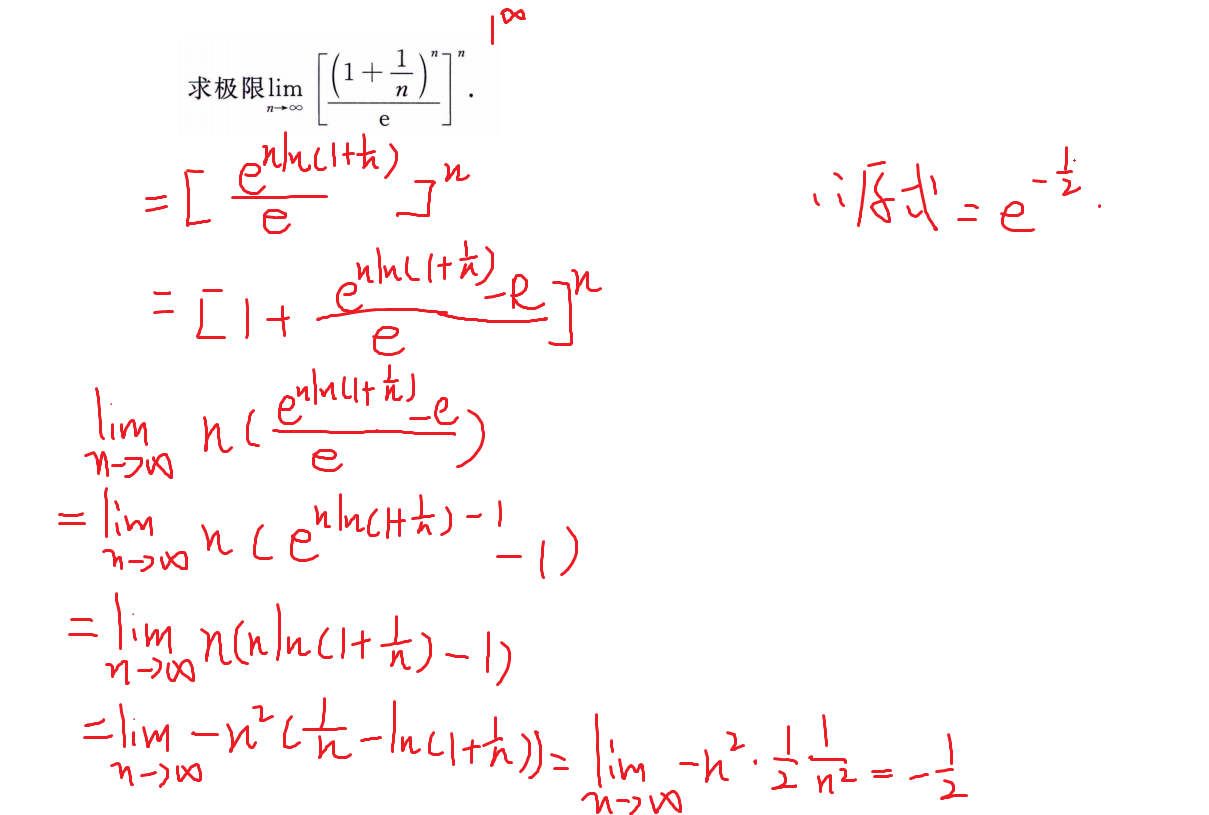 1^∞
求极限lim_{n→∞} [(1+1/n)^n / e]^n.
=[e^{nln(1+1/n)} / e]^n
=[1+ (e^{nln(1+1/n)}-e) / e]^n
lim_{n→∞} n((e^{nln(1+1/n)}-e) / e)
=lim_{n→∞} n(e^{nln(1+1/n)-1}-1)
=lim_{n→∞} n(nln(1+1/n)-1)
=lim_{n→∞} -n^2(1/n-ln(1+1/n))=lim_{n→∞} -n^2·1/2 1/n^2=-1/2
∴原式=e^{-1/2}.